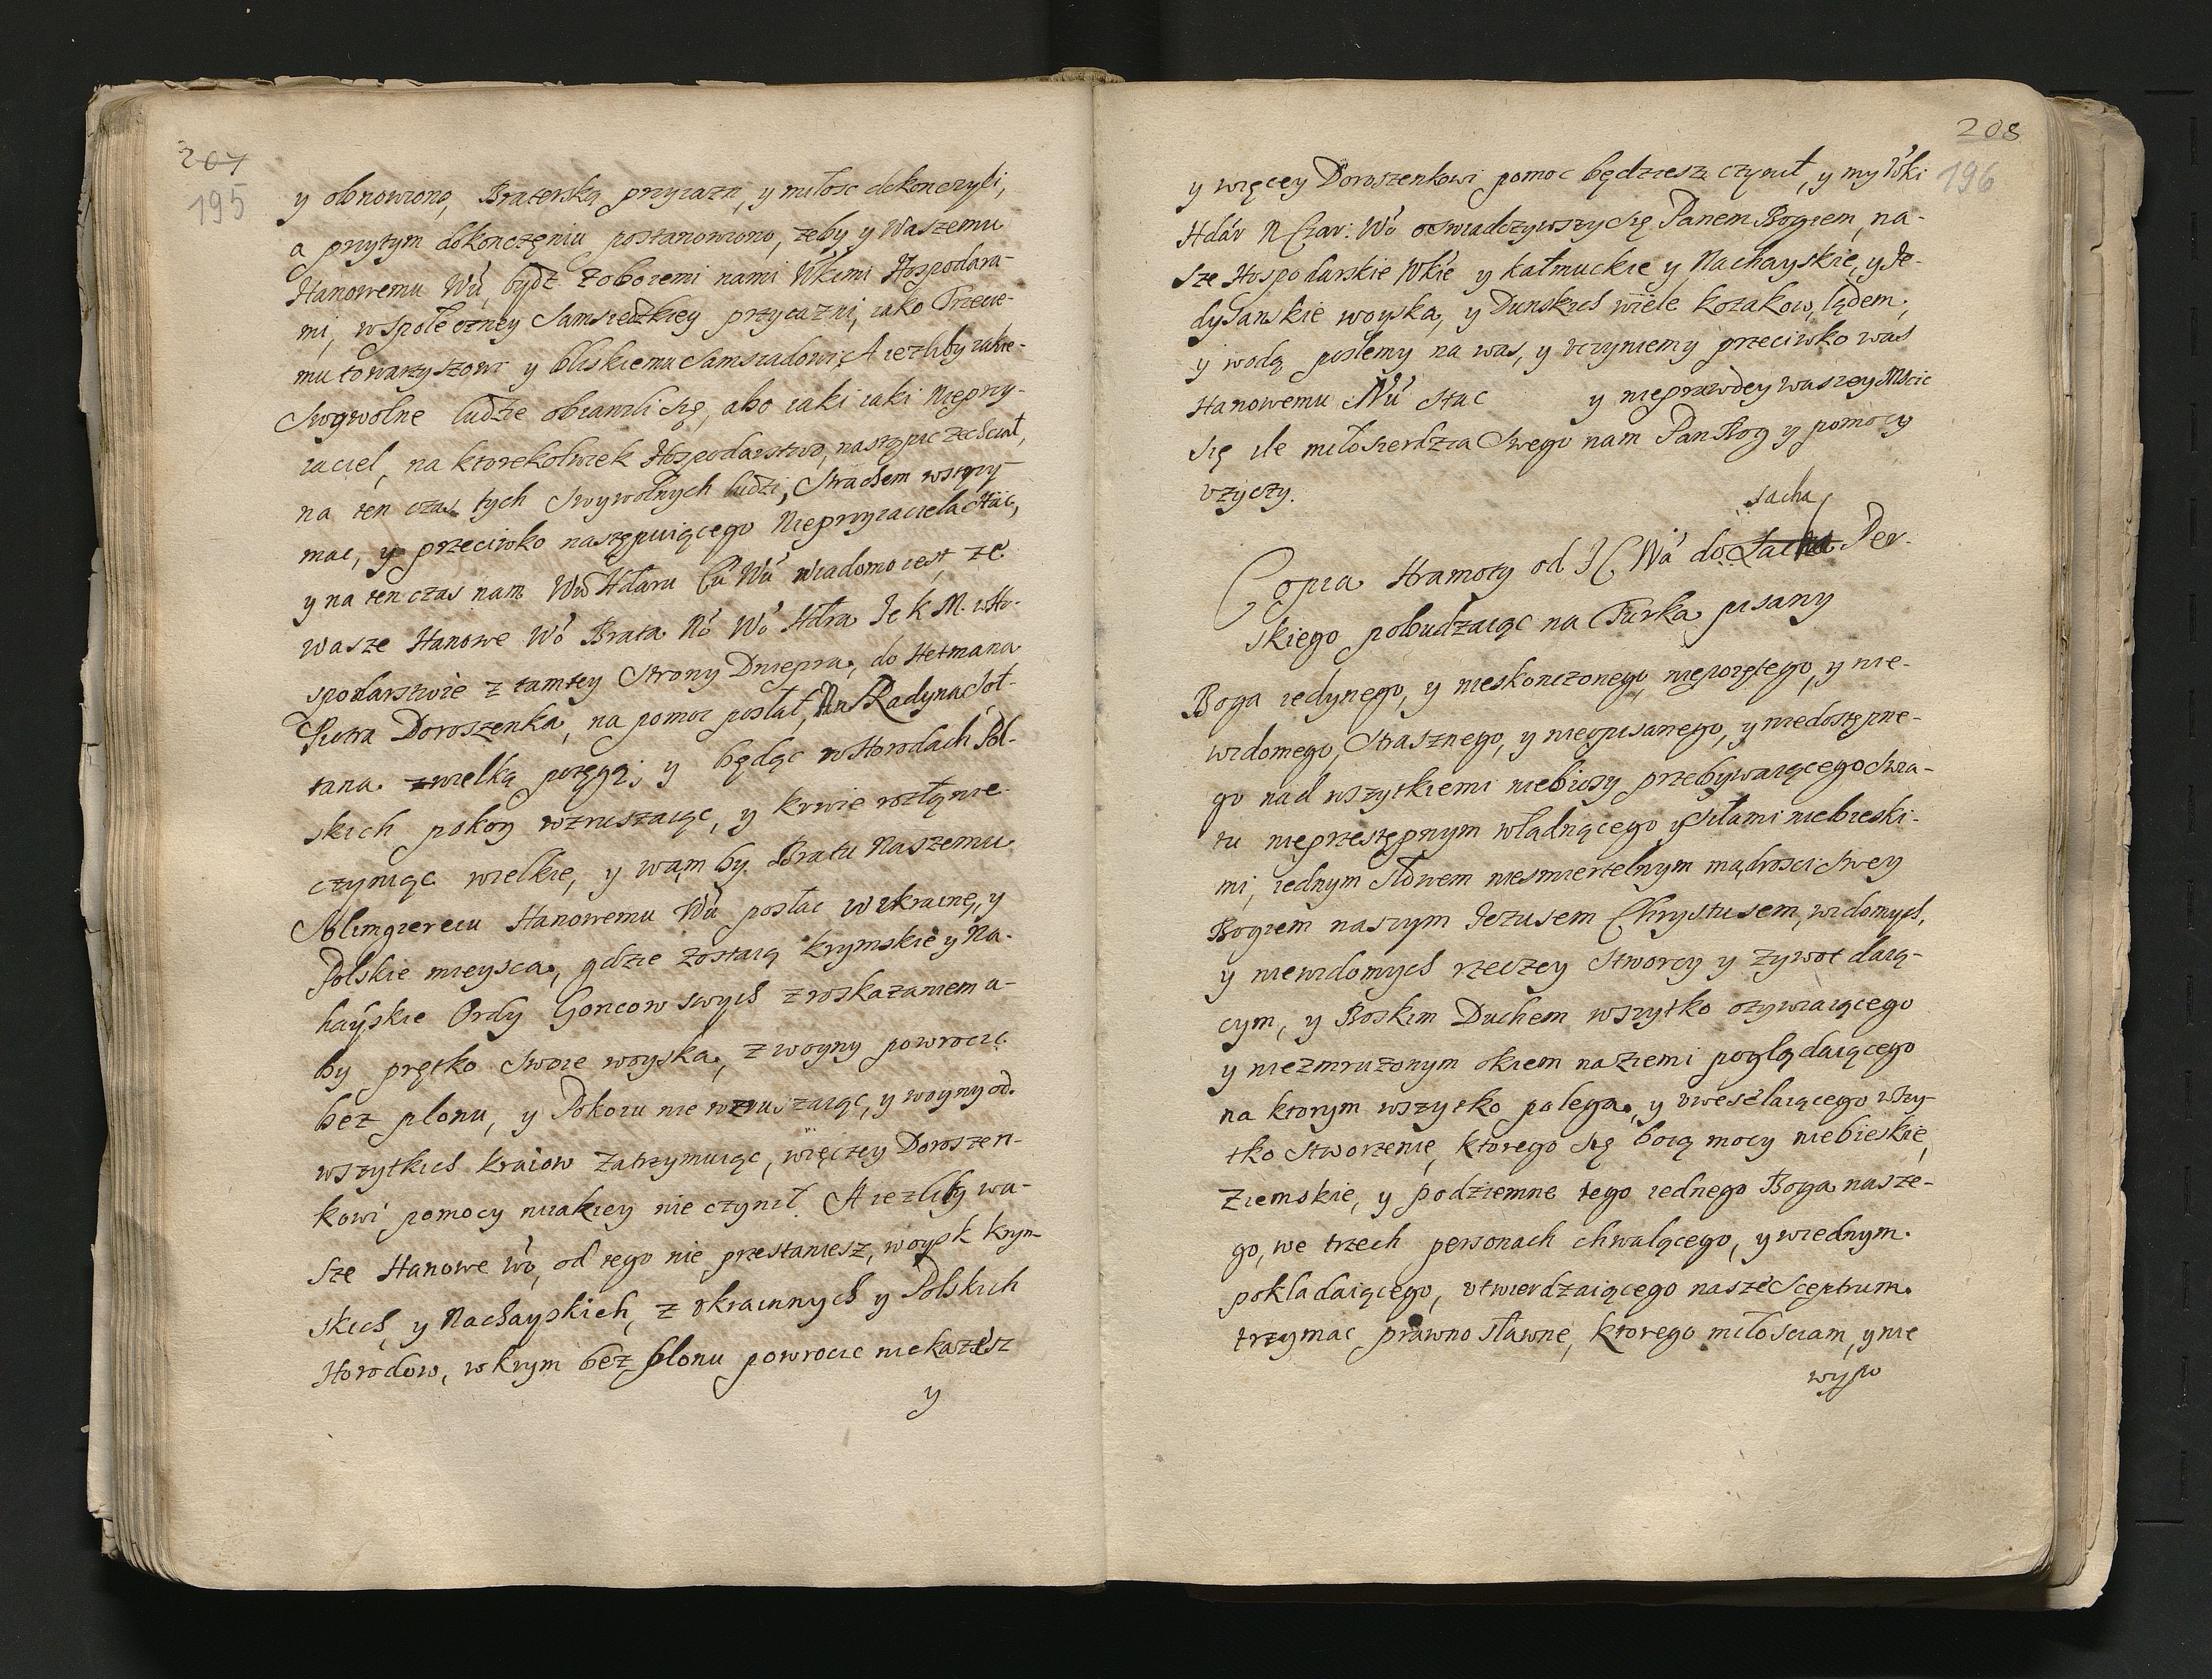 207
195
y obnowiono, Braterską przyiazn, y miłosc dokonczyli,
a przytym dokonczęniu postanowiono, zeby y Waszemu
Hanowemu Wu, bydz z oboiemi nami Wkimi Hospodara-
mi, wspołeczney Samsiedzkiey przyiazni, iako Trzecie-
mu towarzyszowi y bliskiemu Samsiadowi, A iezliby iakie
Swywolne ludzie obiawili się, abo iaki iaki Niepryy-
iaciel, na ktorekolwiek Hospodarstwo, nastąpic zechciał,
na ten czas tych Swywolnych ludzi, Strachem wstrzy-
mac, y przeciwko następuiącego Nieprzyiaciela Stac,
y na ten czas nam Wu Hdaru Cu Wu wiadomo iest, ze
wasze Hanowe Wo Brata No Wo Hdra Je K M. w Ho-
spodarstwie z tamtey Strony Dniepra, do Hetmana
Piotra Doroszenka, na pomoc posłał, Nu Radyna Soł-
tana z wielką potęgą, y będąc w Horodach Pol-
skich pokoy wzruszaiąc, y krwie rozlęnie
czyniąc wielkie, y wam by Bratu Naszemu
Ablimgiereiu Hanowemu Wu posłac w Ukrainę, y
Polskie mieysca, gdzie zostaią Krymskie y Na-
hayskie Ordy Goncow swych z roskazaniem a-
by prętko Swoie woyska, z woyny powrocic
bez plonu, y Pokoiu nie wzruszaiąc, y woyny od
wszytkich kraiow zatrzymuiąc, więczey Doroszen-
kowi pomocy niiakiey nie czynił. A iezliby wa-
sze Hanowe Wo, od tego nie przestaniesz, woysk Krym-
skich, y Nachayskich, z Ukrainnych y Polskich
Horodow, w Krym bez plonu powrocic nie każesz
y
208
196
y więcey Doroszenkowi pomoc będziesz czynił, y my Wki
Hdar N Czar: Wo oswiadczywszy się Panem Bogiem, na-
sze Hospodarskie Wkie y Kałmuckie y Nachayskie, y Je-
dysanskie woyska, y Dunskich wiele Kozakow, lądem,
y wodą poslemy na was, y uczyniemy przeciwko was
Hanowemu Wu stac y nieprawdey waszey Mscic
się ile miłosierdzia Swego nam Pan Bog y pomocy
uzyczy.
sacha
Copia Hramoty od J C Wa do Sacha Per-
skiego pobudzaiąc na Turka pisany
Boga iedynego, y nieskonczonego, niepoiętego, y nie-
widomego, Strasznego, y nieopisanego, y niedostępne-
go nad wszytkiemi niebiosy przebywaiącego Swia-
tu nieprzestępnym władnącego y Siłami niebieski-
mi, iednym Słowem niesmiertelnym mądrosci Swey
Bogiem naszym Jezusem Chrystusem, widomych,
y niewidomych rzeczey Stworcy y zywot daią-
cym, y Boskim Duchem wszytko ozywiaiącego
y niezmruzonym okiem na ziemi poglądaiącego
na ktorym wszytko polega, y uweselaiącego wszy-
tko Stworzenie, ktorego się boią mocy niebieskie,
Ziemskie, y podziemne tego iednego Boga nasze-
go, we trzech personach chwalącego, y wiednym
pokladaiącego, utwierdzaiącego nasze Sceptrum
trzymac prawno sławne, ktorego miłosciam, y nie
wypo